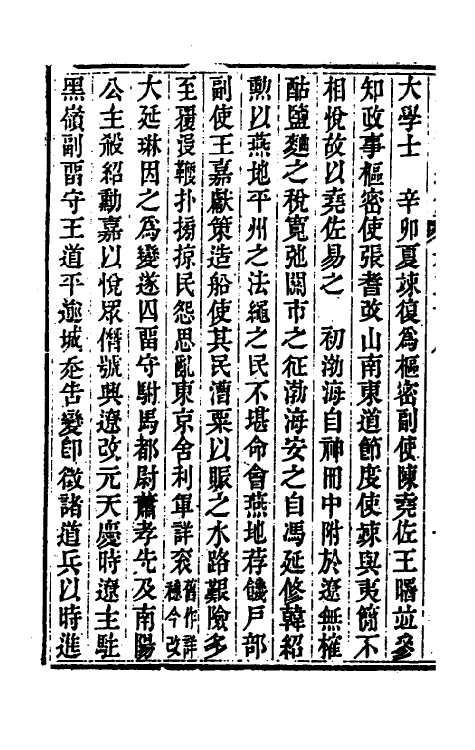 大學士　辛卯夏竦復爲樞密副使陳堯佐王曙竝參
知政事樞密使張耆改山南東道節度使竦與夷簡不
相悅故以堯佐易之　初渤海自神冊中附於遼無榷
酤鹽麴之稅寛弛關市之征渤海安之自馮延修韓紹
勲以燕地平州之法繩之民不堪命會燕地荐饑戸部
副使王嘉獻策造船使其民漕粟以賑之水路艱險多
至覆沒鞭扑搒掠民怨思亂東京舍利軍詳衮舊作詳穩今改
大延琳因之爲變遂囚畱守駙馬都尉蕭孝先及南陽
公主殺紹勳嘉以悅眾僭號興遼改元天慶時遼主駐
黑嶺副畱守王道平踰城走告變卽徵諸道兵以時進